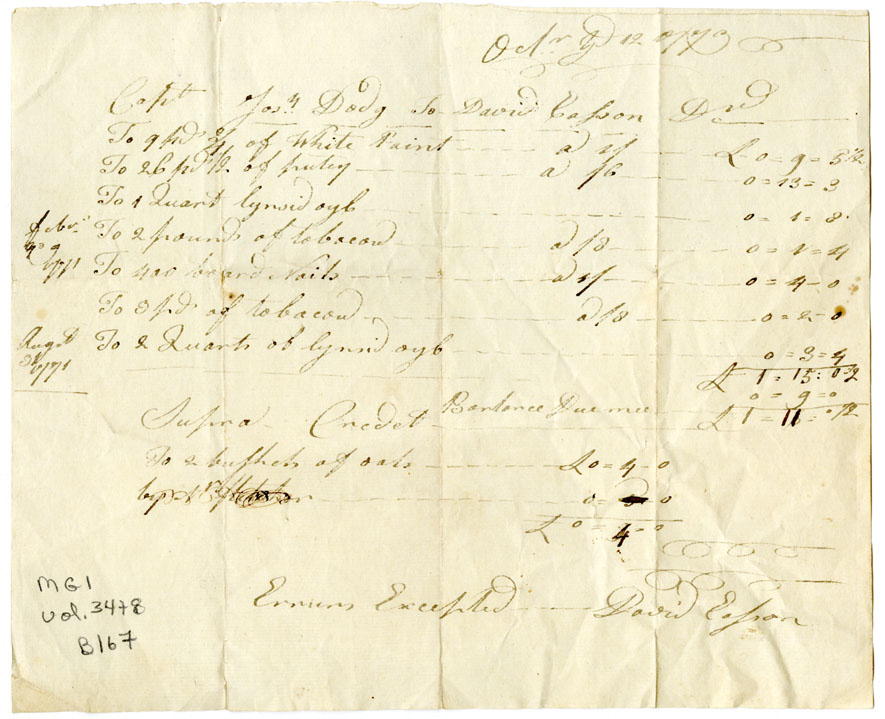 Octr yd 12 1773
Capt Josh Dodg To David Easson Drd
To 9 pd 3/4 of White Paint a 1/ £ 0=9=3 1/2
To 26 pd 1/2 of putey a /6 0=13=3
To 1 Quart lynsid oyb 0=1=8
Febr
9
1771
To 2 pounds of tobacow a /8 0=1=4
To 400 board Nails a 1/ 0=4=0
To 3 pd of tobacow a /8 0=2=0
Augst
31
1771
To 2 Quarts of lynsid oyb 0=3=4
£ 1=15=0 1/2
0=9=0
Supra Credet Barlance Due mee £ 1=11=0 1/2
To 2 bushels of oats £0=4=0
0= =0
£ 0=4=0
Erruns Excepted David Easson
MG1
vol. 3478
B167